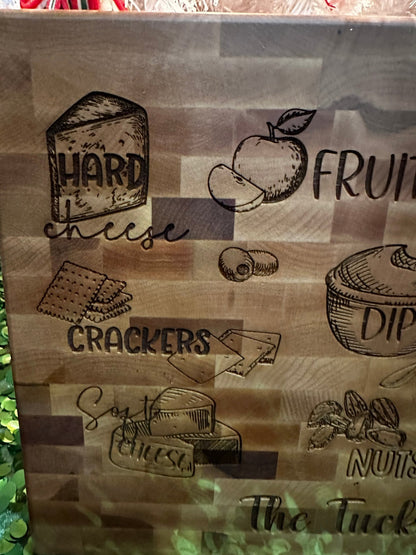 HARD
cheese
FRUIT
CRACKERS
DIP
Soft
CHEESE
NUTS
The Tuck